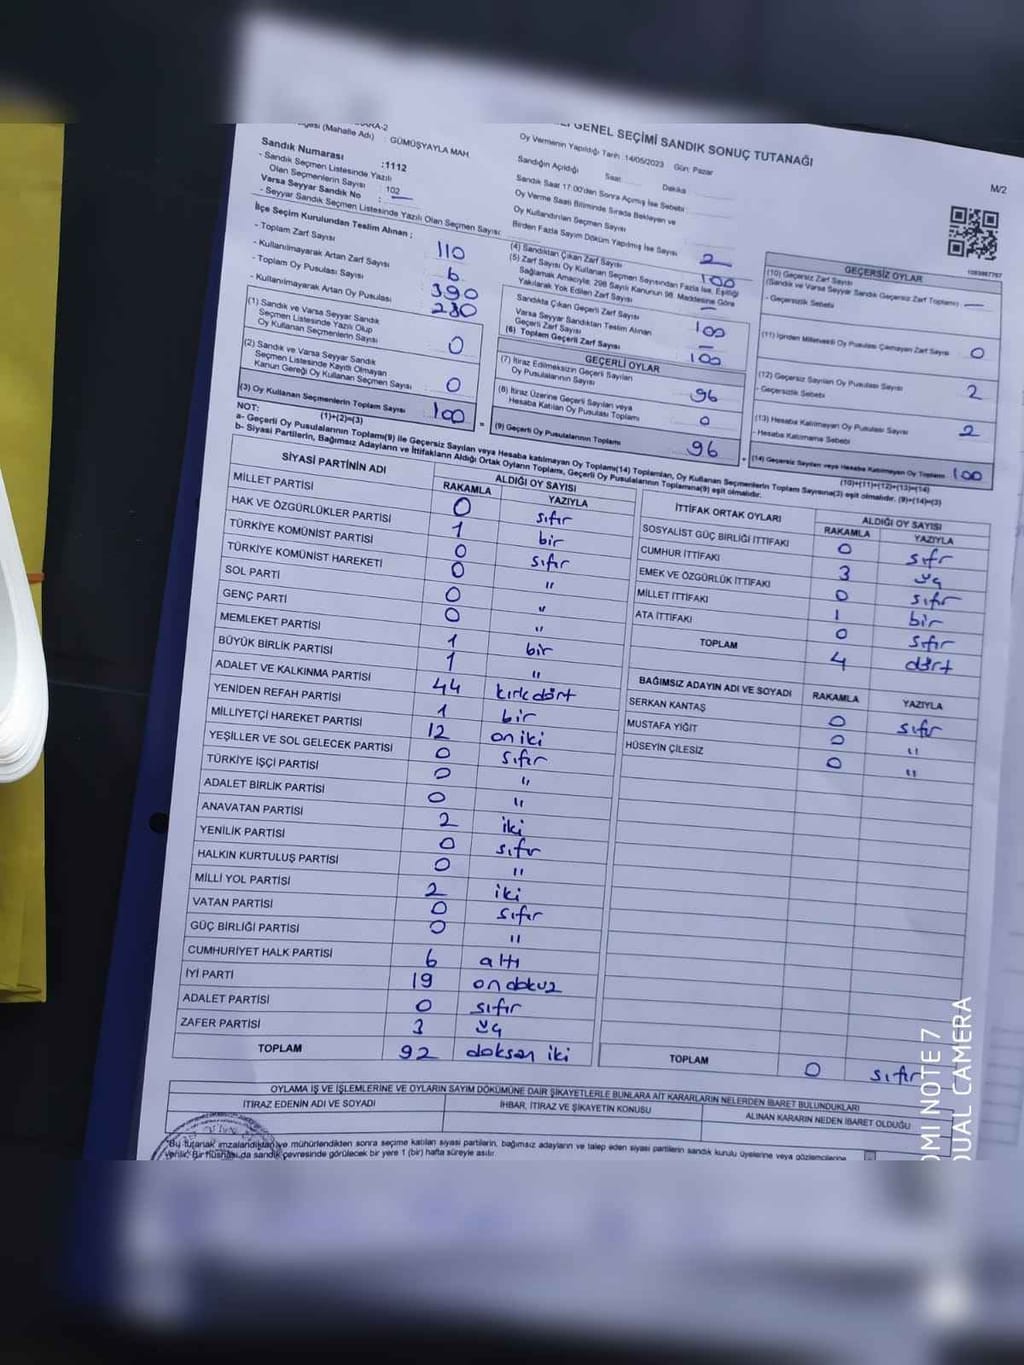 GENEL SEÇİMİ SANDIK SONUÇ TUTANAĞI
M/2
(Mahalle Adı) : GÜMÜŞYAYLA MAH.
Sandık Numarası :1112
- Sandık Seçmen Listesinde Yazılı Olan Seçmenlerin Sayısı : 102
Varsa Seyyar Sandık No :
- Seyyar Sandık Seçmen Listesinde Yazılı Olan Seçmen Sayısı:
Oy Vermenin Yapıldığı Tarih :14/05/2023 Gün: Pazar
Sandığın Açıldığı Saat Dakika
Sandık Saat 17:00'den Sonra Açılmış İse Sebebi
Oy Verme Saati Bitiminde Sırada Bekleyen ve
Oy Kullandırılan Seçmen Sayısı
Birden Fazla Sayım Döküm Yapılmış İse Sayısı 2
İlçe Seçim Kurulundan Teslim Alınan ;
- Toplam Zarf Sayısı 110
- Kullanılmayarak Artan Zarf Sayısı 6
- Toplam Oy Pusulası Sayısı 390
- Kullanılmayarak Artan Oy Pusulası 280
(1) Sandık ve Varsa Seyyar Sandık Seçmen Listesinde Yazılı Olup Oy Kullanan Seçmenlerin Sayısı 0
(2) Sandık ve Varsa Seyyar Sandık Seçmen Listesinde Kayıtlı Olmayan Kanun Gereği Oy Kullanan Seçmen Sayısı 0
(3) Oy Kullanan Seçmenlerin Toplam Sayısı (1)+(2)=(3) 100
(4) Sandıktan Çıkan Zarf Sayısı 100
(5) Zarf Sayısı Oy Kullanan Seçmen Sayısından Fazla İse, Eşitliği Sağlamak Amacıyla, 298 Sayılı Kanunun 98. Maddesine Göre Yakılarak Yok Edilen Zarf Sayısı —
Sandıkta Çıkan Geçerli Zarf Sayısı 100
Varsa Seyyar Sandıktan Teslim Alınan Geçerli Zarf Sayısı —
(6) Toplam Geçerli Zarf Sayısı 100
GEÇERLİ OYLAR
(7) İtiraz Edilmeksizin Geçerli Sayılan Oy Pusulalarının Sayısı 96
(8) İtiraz Üzerine Geçerli Sayılan veya Hesaba Katılan Oy Pusulası Toplamı 0
(9) Geçerli Oy Pusulalarının Toplamı 96
GEÇERSİZ OYLAR
(10) Geçersiz Zarf Sayısı (Sandık ve Varsa Seyyar Sandık Geçersiz Zarf Toplamı) —
- Geçersizlik Sebebi
(11) İçinden Milletvekili Oy Pusulası Çıkmayan Zarf Sayısı 0
(12) Geçersiz Sayılan Oy Pusulası Sayısı 2
- Geçersizlik Sebebi
(13) Hesaba Katılmayan Oy Pusulası Sayısı 2
- Hesaba Katılmama Sebebi
(14) Geçersiz Sayılan veya Hesaba Katılmayan Oy Toplamı 100
(10)+(11)+(12)+(13)=(14)
NOT:
a- Geçerli Oy Pusulalarının Toplamı(9) ile Geçersiz Sayılan veya Hesaba katılmayan Oy Toplamı(14) Toplamları, Oy Kullanan Seçmenlerin Toplam Sayısına(3) eşit olmalıdır. (9)+(14)=(3)
b- Siyasi Partilerin, Bağımsız Adayların ve İttifakların Aldığı Ortak Oyların Toplamı, Geçerli Oy Pusulalarının Toplamına(9) eşit olmalıdır.
SİYASİ PARTİNİN ADI ALDIĞI OY SAYISI
RAKAMLA YAZIYLA
MİLLET PARTİSİ 0 sıfır
HAK VE ÖZGÜRLÜKLER PARTİSİ 1 bir
TÜRKİYE KOMÜNİST PARTİSİ 0 sıfır
TÜRKİYE KOMÜNİST HAREKETİ 0 "
SOL PARTİ 0 "
GENÇ PARTİ 0 "
MEMLEKET PARTİSİ 1 bir
BÜYÜK BİRLİK PARTİSİ 1 "
ADALET VE KALKINMA PARTİSİ 44 kırkdört
YENİDEN REFAH PARTİSİ 1 bir
MİLLİYETÇİ HAREKET PARTİSİ 12 oniki
YEŞİLLER VE SOL GELECEK PARTİSİ 0 sıfır
TÜRKİYE İŞÇİ PARTİSİ 0 "
ADALET BİRLİK PARTİSİ 0 "
ANAVATAN PARTİSİ 2 iki
YENİLİK PARTİSİ 0 sıfır
HALKIN KURTULUŞ PARTİSİ 0 "
MİLLİ YOL PARTİSİ 2 iki
VATAN PARTİSİ 0 sıfır
GÜÇ BİRLİĞİ PARTİSİ 0 "
CUMHURİYET HALK PARTİSİ 6 altı
İYİ PARTİ 19 ondokuz
ADALET PARTİSİ 0 sıfır
ZAFER PARTİSİ 3 üç
TOPLAM 92 doksan iki
İTTİFAK ORTAK OYLARI ALDIĞI OY SAYISI
RAKAMLA YAZIYLA
SOSYALİST GÜÇ BİRLİĞİ İTTİFAKI 0 sıfır
CUMHUR İTTİFAKI 3 üç
EMEK VE ÖZGÜRLÜK İTTİFAKI 0 sıfır
MİLLET İTTİFAKI 1 bir
ATA İTTİFAKI 0 sıfır
TOPLAM 4 dört
BAĞIMSIZ ADAYIN ADI VE SOYADI RAKAMLA YAZIYLA
SERKAN KANTAŞ 0 sıfır
MUSTAFA YİĞİT 0 "
HÜSEYİN ÇİLESİZ 0 "
TOPLAM 0 sıfır
OYLAMA İŞ VE İŞLEMLERİNE VE OYLARIN SAYIM DÖKÜMÜNE DAİR ŞİKAYETLERLE BUNLARA AİT KARARLARIN NELERDEN İBARET BULUNDUKLARI
İTİRAZ EDENİN ADI VE SOYADI İHBAR, İTİRAZ VE ŞİKAYETİN KONUSU ALINAN KARARIN NEDEN İBARET OLDUĞU
"Bu tutanak imzalandıktan ve mühürlendikten sonra seçime katılan siyasi partilerin, bağımsız adayların ve talep eden siyasi partilerin sandık kurulu üyelerine veya gözlemcilerine
verilir. Bir nüshası da sandık çevresinde görülecek bir yere 1 (bir) hafta süreyle asılır.
OMI NOTE 7
DUAL CAMERA